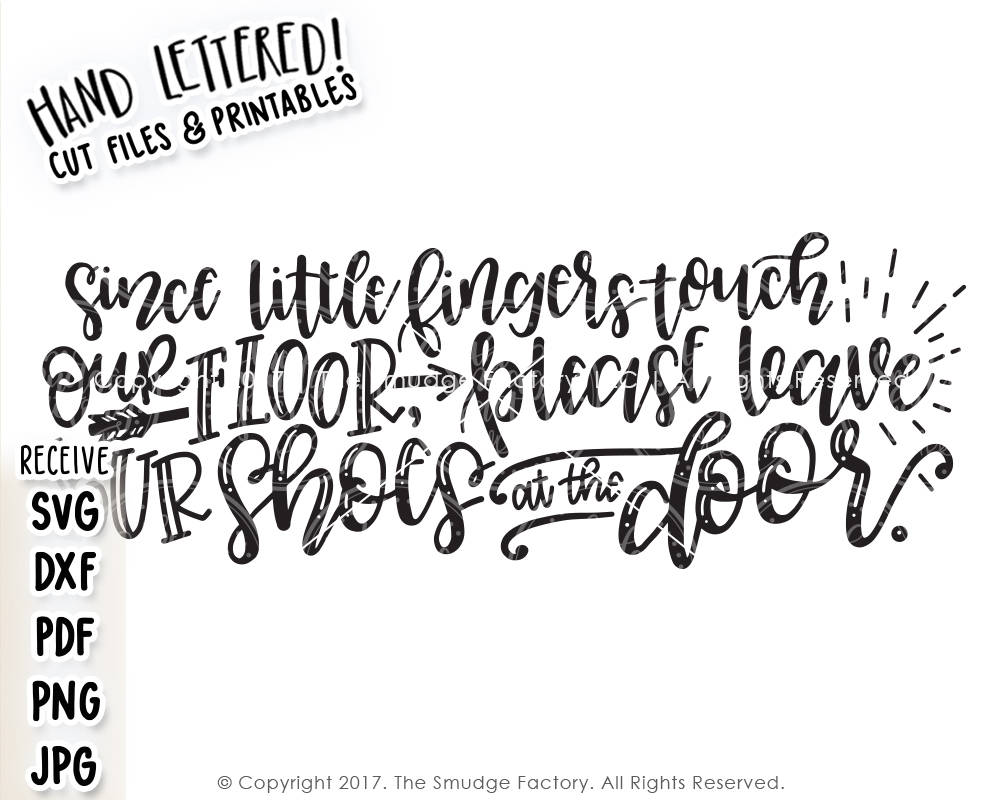 HAND LETTERED!
CUT FILES & PRINTABLES
Since little fingers touch
OUR FLOOR, please leave
UR shoes at the door.
© Copyright 2017. The Smudge Factory, LLC. All Rights Reserved.
RECEIVE
SVG
DXF
PDF
PNG
JPG
© Copyright 2017. The Smudge Factory. All Rights Reserved.